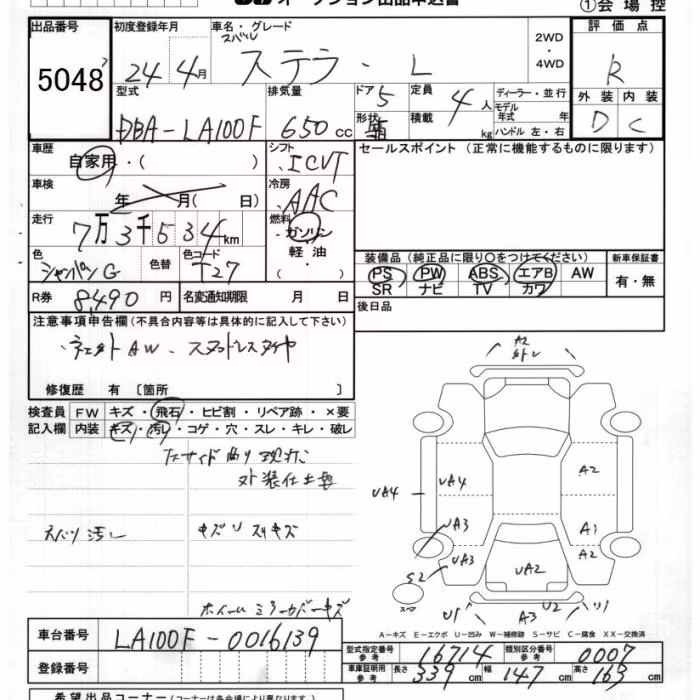 オークション出品申込書
①会場控
出品番号
5048
初度登録年月
24年4月
車名・グレード
スバル
ステラ・L
2WD
・
4WD
評価点
R
外装 内装
D C
型式
DBA-LA100F
排気量
650cc
ドア
5
形状
定員
4人
積載
kg
ディーラー・並行
モデル
年式 年
ハンドル 左・右
車歴
自家用・( )
シフト
ICVT
セールスポイント(正常に機能するものに限ります)
車検
年 月( 日)
冷房
AAC
走行
7万3千534km
燃料
ガソリン
軽油
( )
色
シャンパンG
色替
色コード
T27
装備品(純正品に限り○をつけてください)
新車保証書
PS PW ABS エアB AW
SR ナビ TV カワ
有・無
R券
8,490円
名変通知期限 月 日
後日品
注意事項申告欄(不具合内容等は具体的に記入して下さい)
AW・スタッドレスタイヤ
修復歴 有〔箇所 〕
検査員
記入欄
FW キズ・飛石・ヒビ割・リペア跡・×要
内装 キズ・汚レ・コゲ・穴・スレ・キレ・破レ
外装仕上要
汚レ
キズ
A2
外レ
UA4
UA4
A2
UA3
A1
UA3
A2
S2
UA2
スペア
U1
A3
U2
U1
A-キズ E-エクボ U-凹み W-補修跡 S-サビ C-腐食 XX-交換済
車台番号
LA100F-0016139
登録番号
型式指定番号
参考
16714
類別区分番号
参考
0007
車庫証明用
参考
長さ
339cm
幅
147cm
高さ
163cm
希望出品コーナー(コーナーは各会場により異なります)